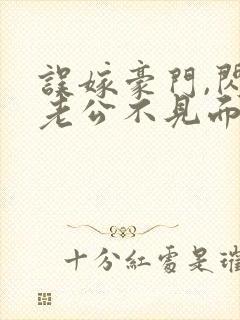 誤嫁豪門,閃
老公不見而
十分紅處是璀